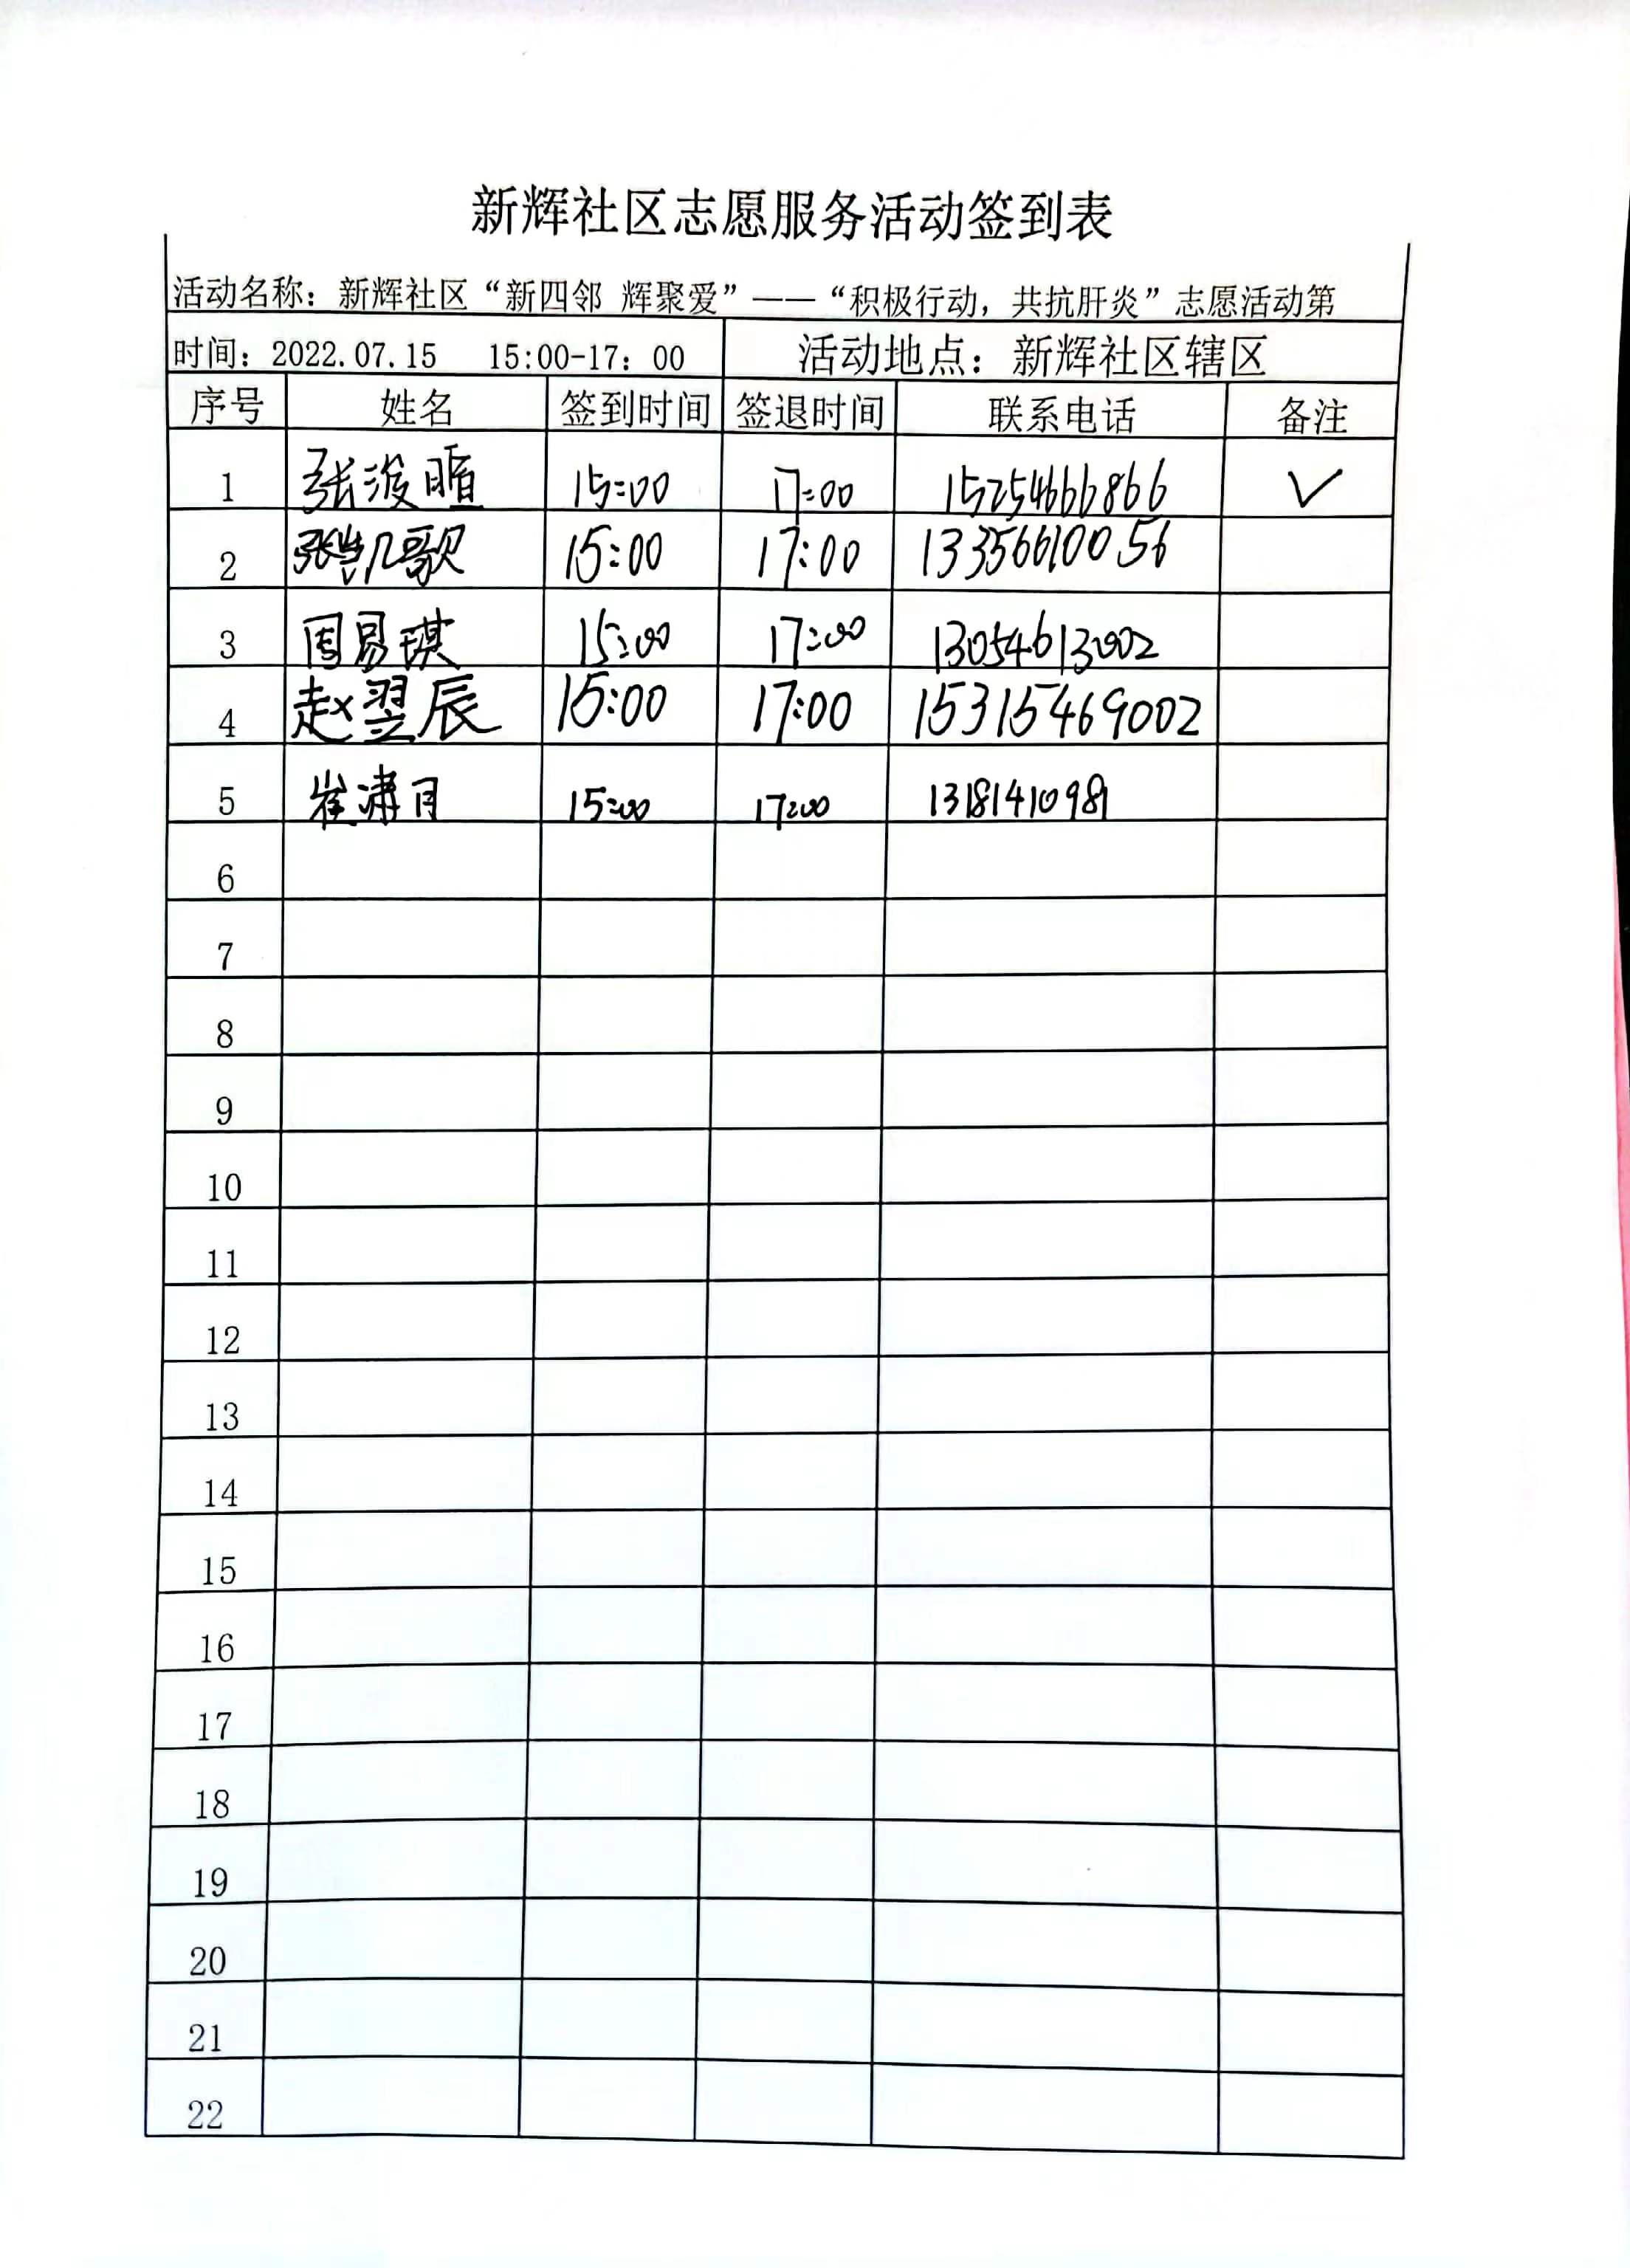 新辉社区志愿服务活动签到表
活动名称：新辉社区“新四邻 辉聚爱”——“积极行动，共抗肝炎”志愿活动第
时间：2022.07.15 15:00-17：00 活动地点：新辉社区辖区
序号 姓名 签到时间 签退时间 联系电话 备注
1 张浚暄 15:00 17:00 15254666866 ✓
2 张凯歌 15:00 17:00 13356610056
3 周易琪 15:00 17:00 13054613002
4 赵翌辰 15:00 17:00 15315469002
5 崔潇月 15:00 17:00 13181410981
6
7
8
9
10
11
12
13
14
15
16
17
18
19
20
21
22